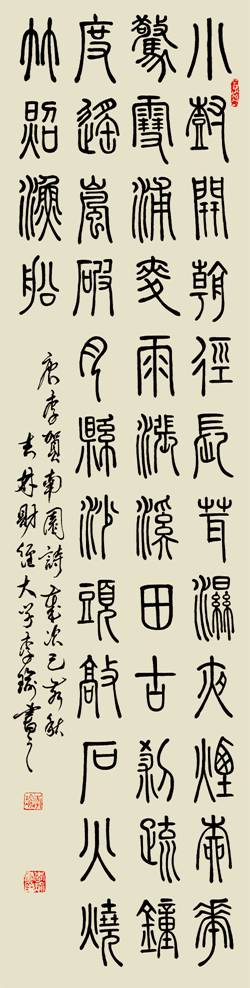 小樹開朝徑長茸濕夜煙柳花
驚雪浦麥雨漲溪田古剎疏鐘
度遙嵐破月縣沙頭敲石火燒
竹照漁船
唐李賀南園詩歲次己亥秋
吉林財經大學李書之